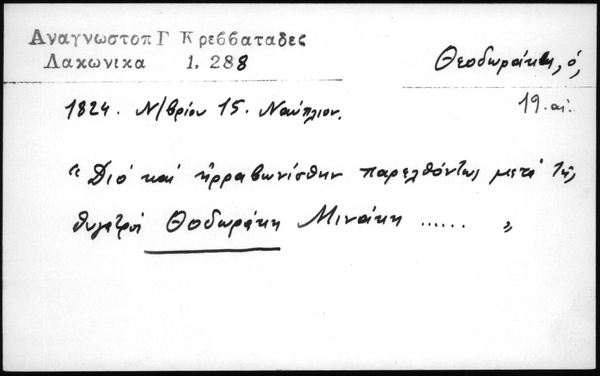 Αναγνωστοπ Γ Κρεββαταδες
Λακωνικα 1, 288
Θεοδωράκης, ό,
19. αι.
1824. Ν/βρίου 15. Ναύπλιον.
"Διό καί ήρραβωνίσθην παρελθόντως μετά τής
θυγατρός Θοδωράκη Μινάκη ...... "